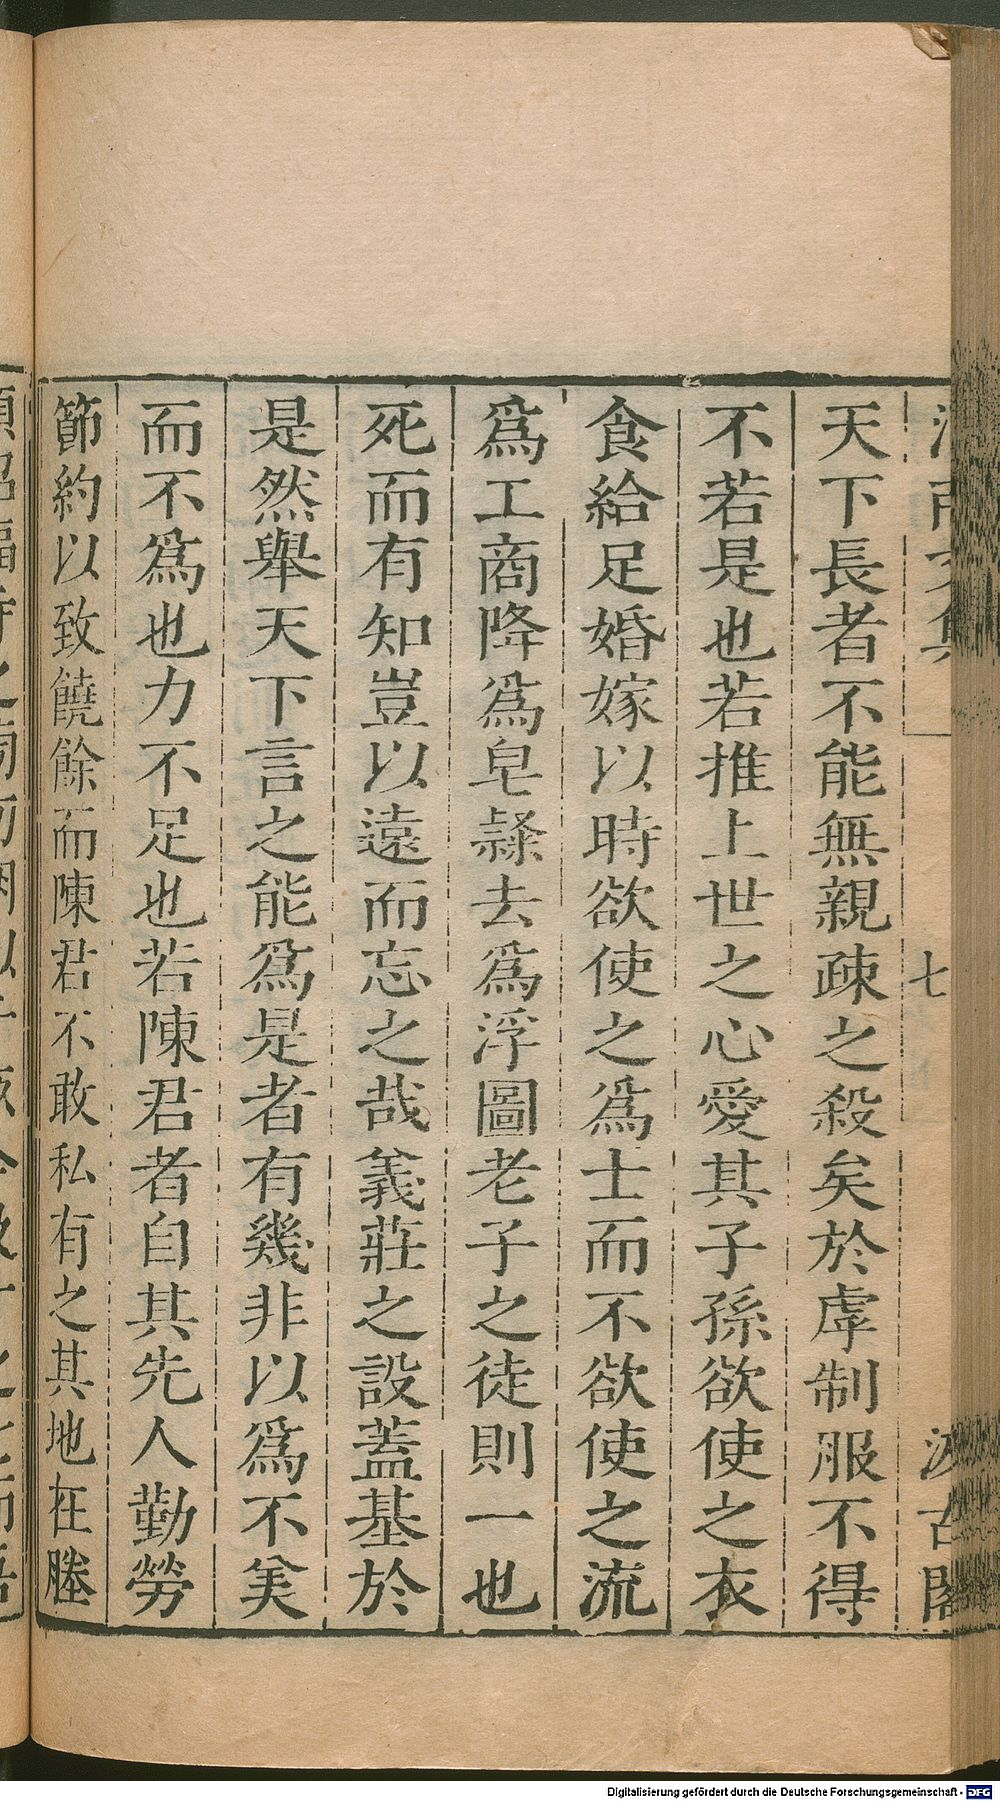 天下長者不能無親疎之殺矣於虖制服不得
不若是也若推上世之心愛其子孫欲使之衣
食給足婚嫁以時欲使之爲士而不欲使之流
爲工商降爲皂隷去爲浮圖老子之徒則一也
死而有知豈以遠而忘之哉義莊之設蓋基於
是然舉天下言之能爲是者有幾非以爲不美
而不爲也力不足也若陳君者自其先人勤勞
節約以致饒餘而陳君不敢私有之其地在塍
七
Digitalisierung gefördert durch die Deutsche Forschungsgemeinschaft - DFG